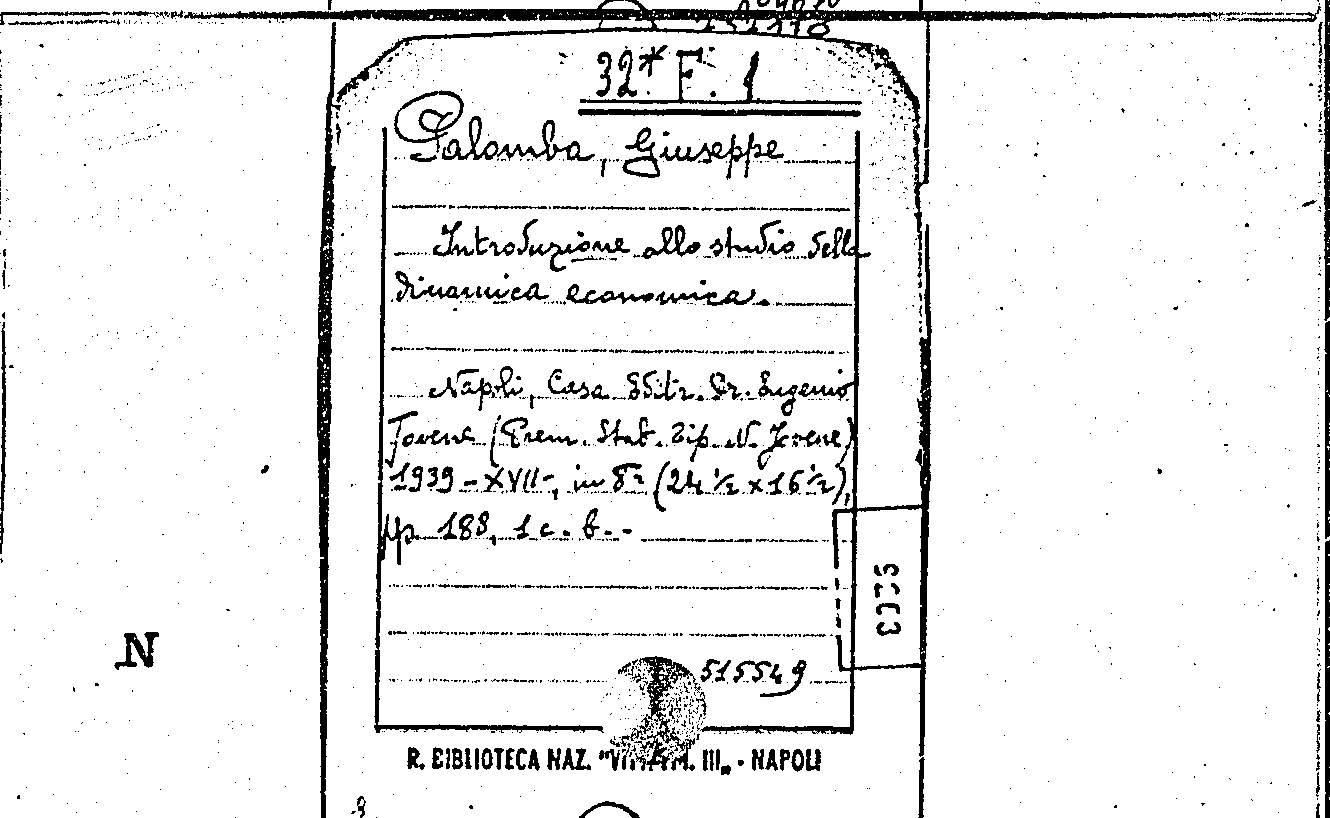 32* F. 1
Palomba, Giuseppe
Introduzione allo studio della
dinamica economica.
Napoli, Casa Editr. Dr. Eugenio
Jovene (Prem. Stab. Tip. N. Jovene)
1939-XVII-, in 8º (24 ½ x 16 ½),
pp. 188, 1 c. b. -
515549
R. BIBLIOTECA NAZ. "VITT. EM. III„ - NAPOLI
N